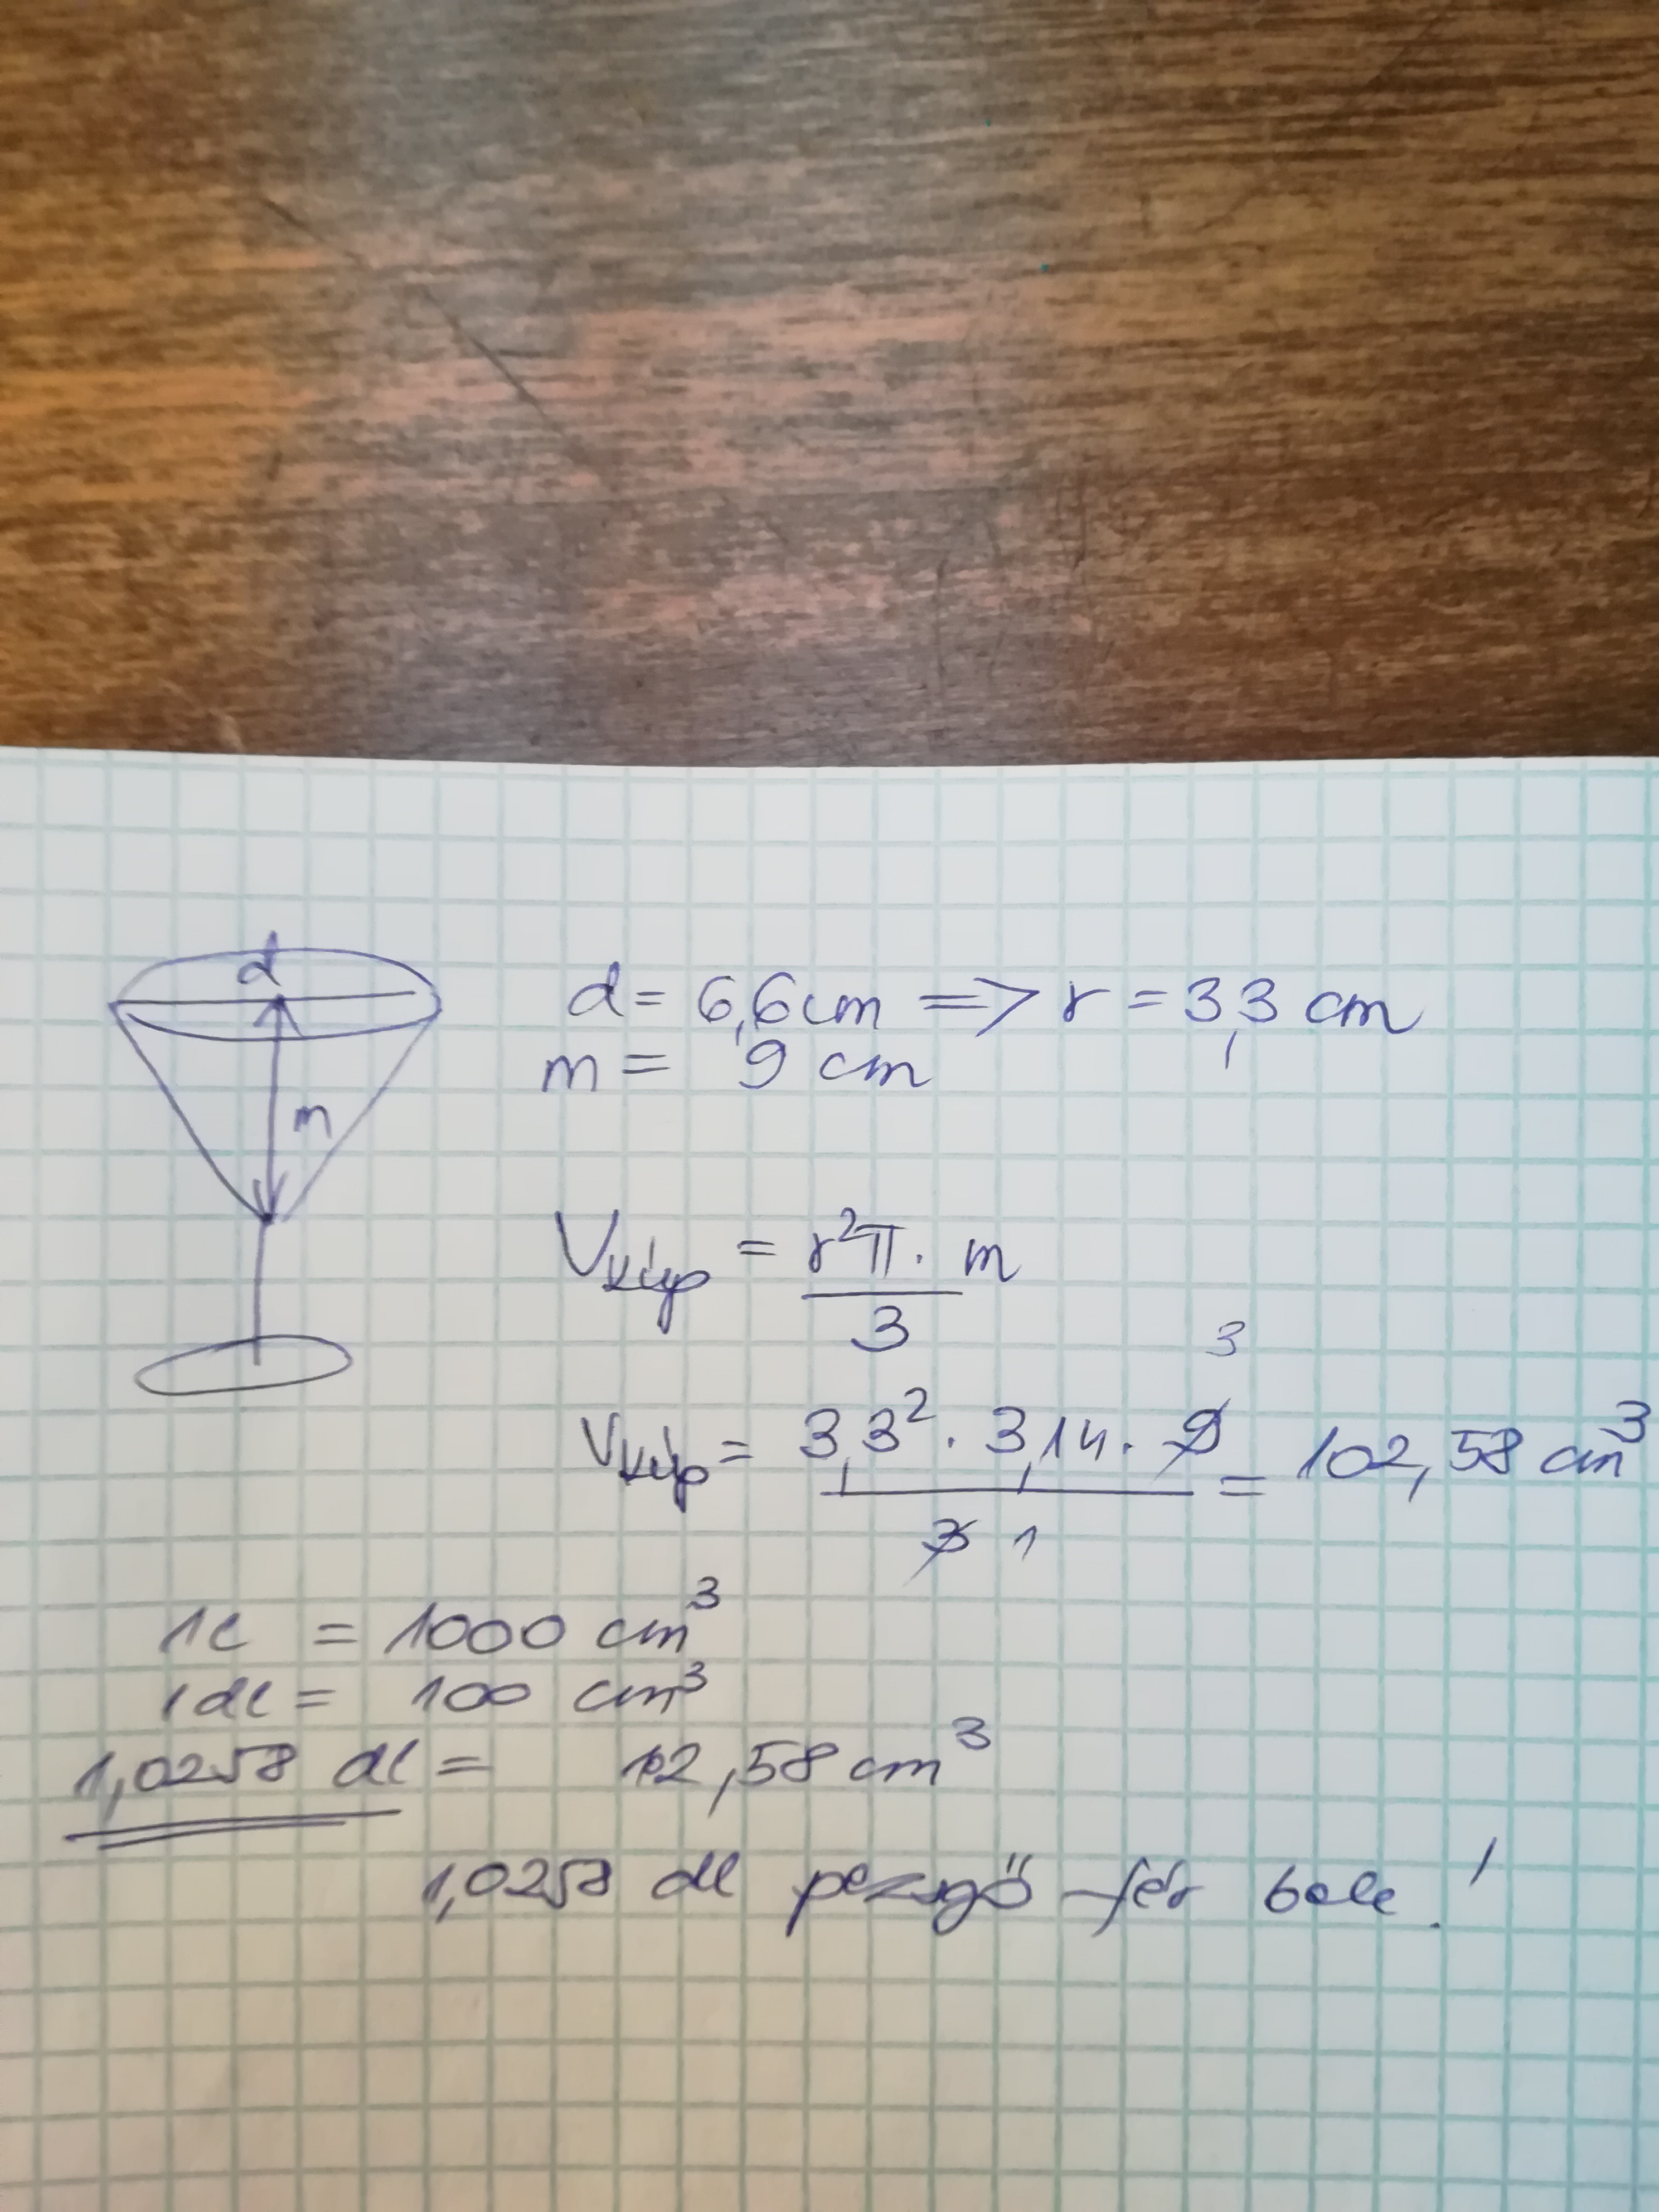 d
d = 6,6 cm => r = 3,3 cm
m = 9 cm
m
V kúp = r²π · m
3
3
V kúp = 3,3² · 3,14 · 9 = 102,58 cm³
3 1
1l = 1000 cm³
1dl = 100 cm³
1,0258 dl = 12,58 cm³
1,0258 dl pezsgő fér bele!